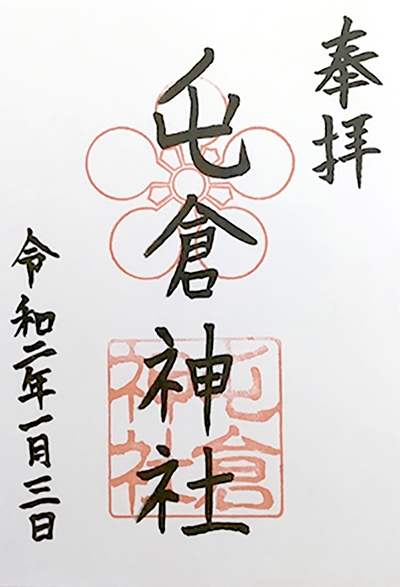 奉拝
屯倉神社
屯倉
神社
令和二年一月三日